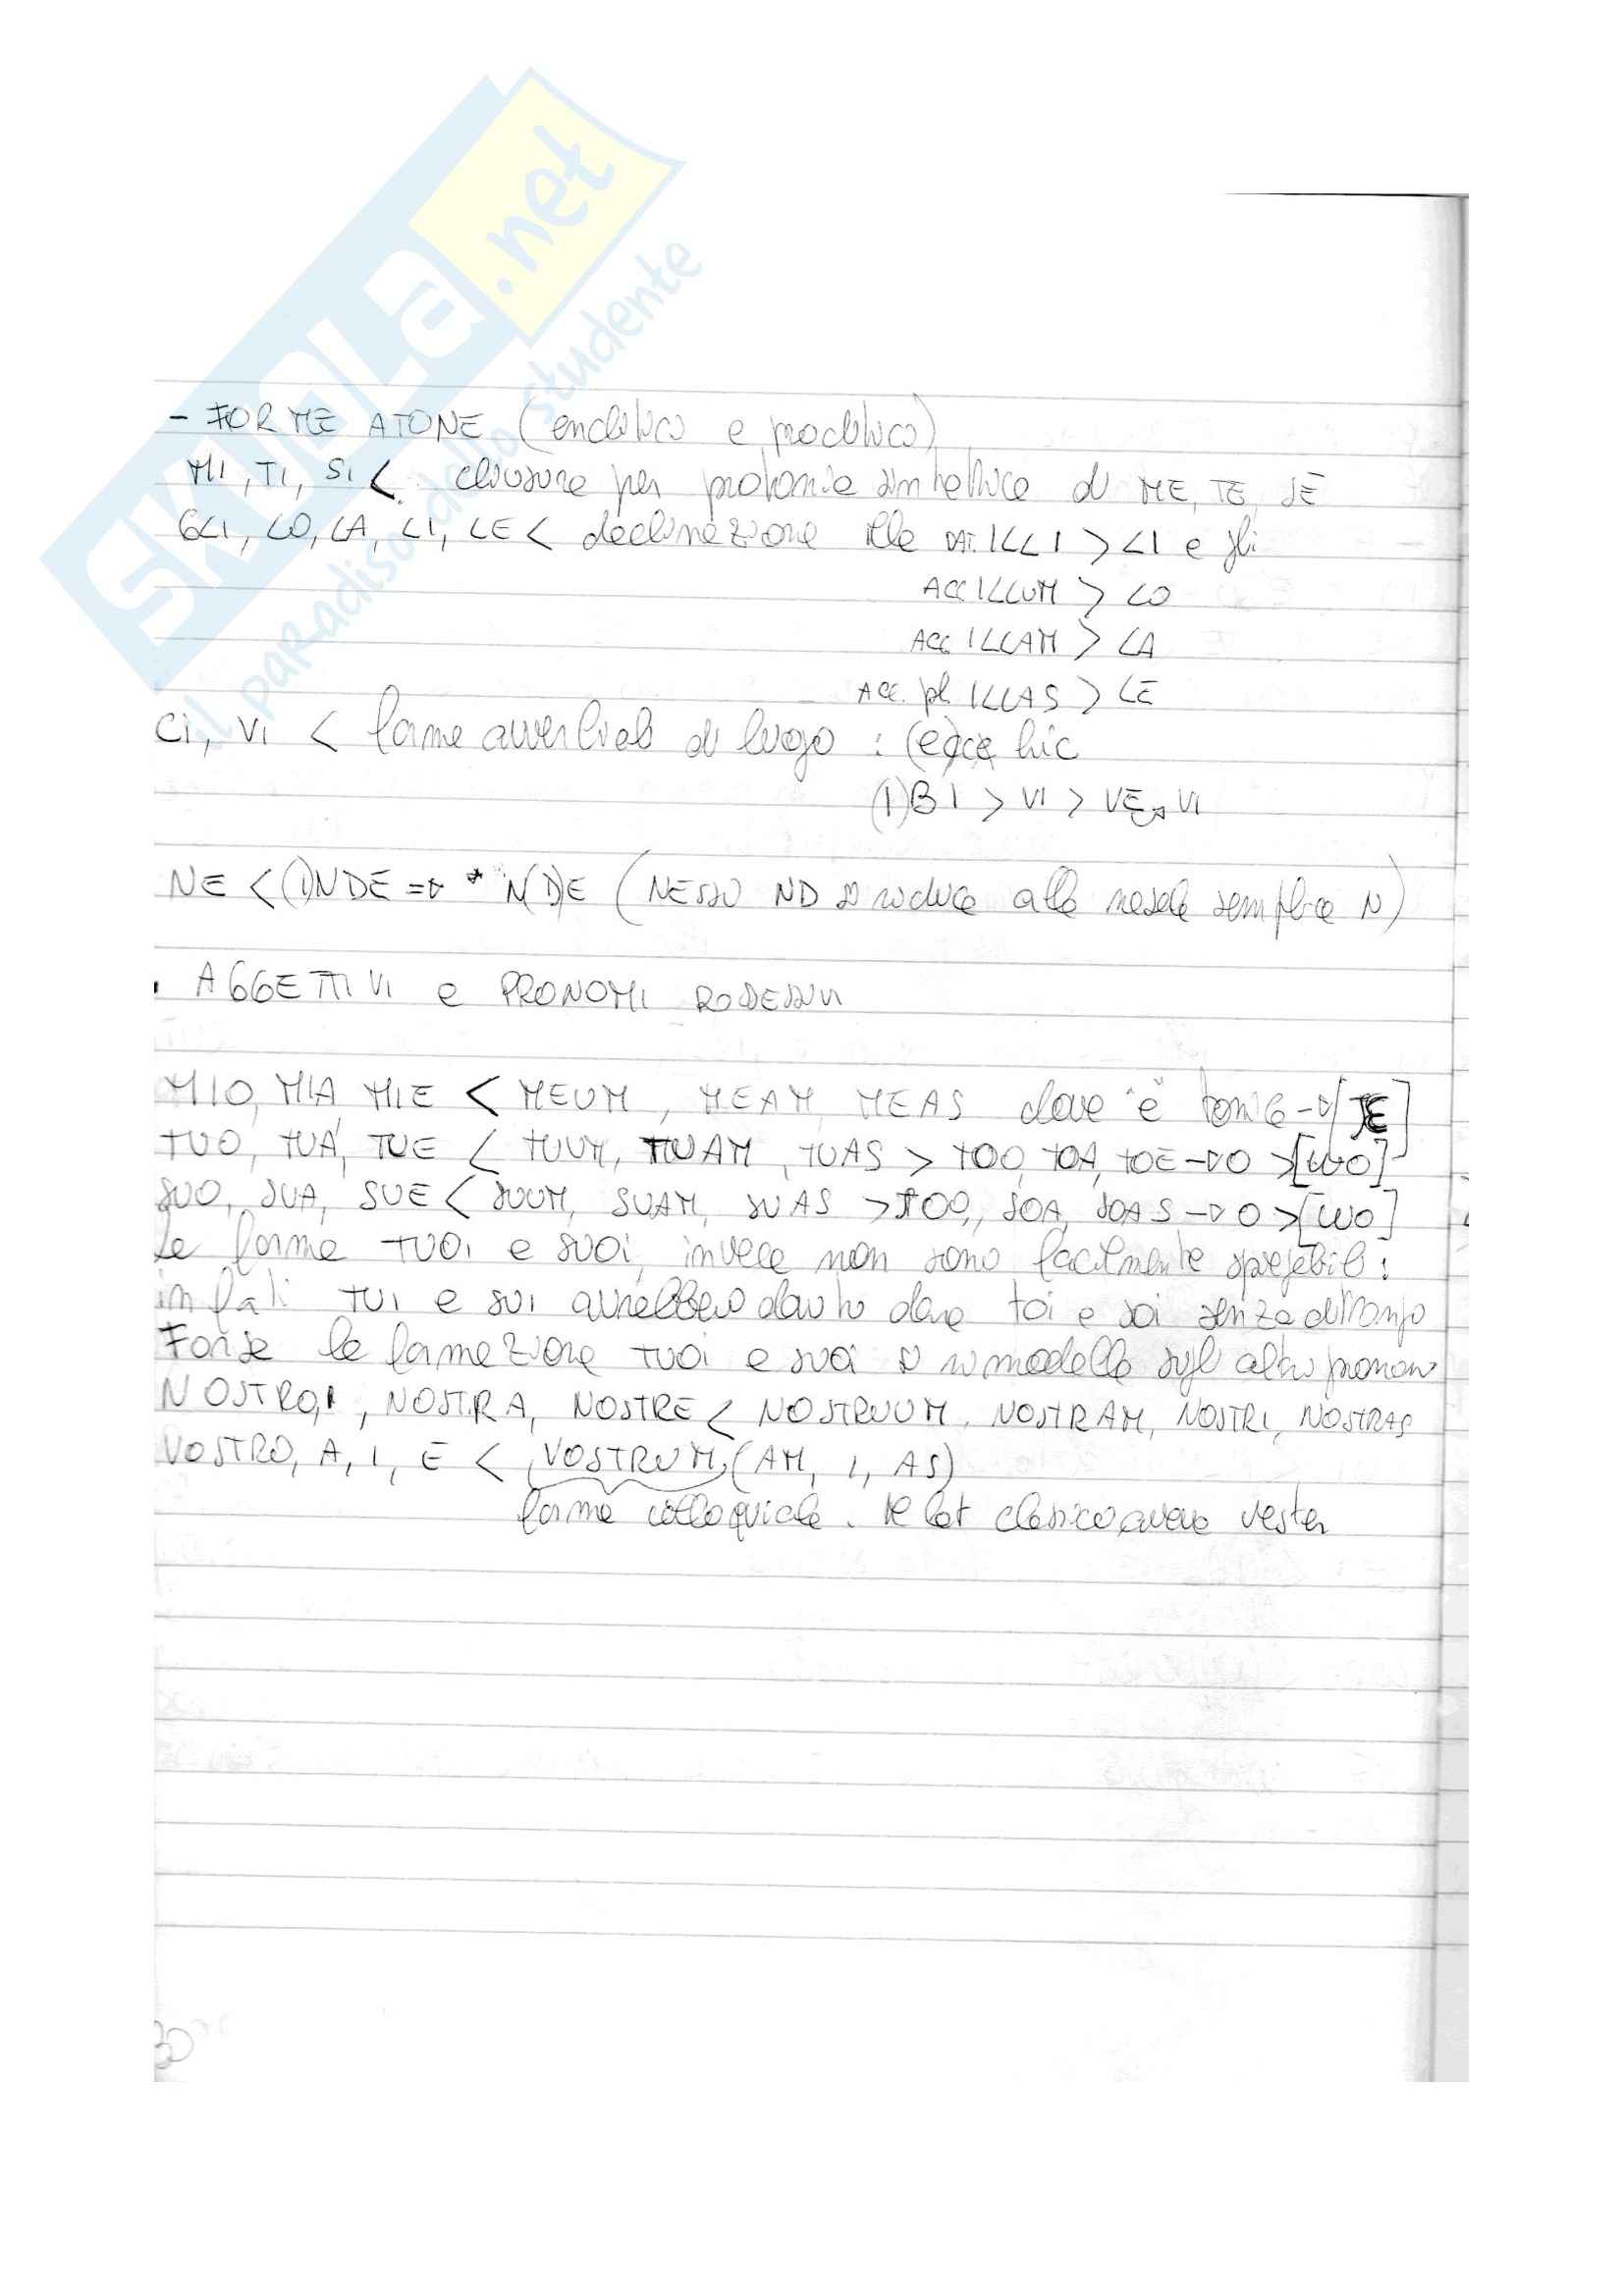 SKUOLA.net
il paradiso dello studente
- FORME ATONE (enclitico e proclitico)
MI, TI, SI < chiusura per protonia sintattica di ME, TE, SE
GLI, LO, LA, LI, LE < declinazione ille DAT. ILLI > LI e gli
ACC ILLUM > LO
ACC ILLAM > LA
ACC. pl. ILLAS > LE
CI, VI < forme avverbiali di luogo : (ec)ce hic
(I)BI > VI > VE, VI
NE < (I)NDE => * N(D)E (NESSO ND si riduce alla nasale semplice N)
. AGGETTIVI e PRONOMI POSSESSIVI
MIO, MIA MIE < MEUM, MEAM, MEAS dove "e" tonica -> [JE]
TUO, TUA, TUE < TUUM, TUAM, TUAS > TOO, TOA, TOE -> O > [WO]
SUO, SUA, SUE < SUUM, SUAM, SUAS > SOO, SOA, SOAS -> O > [WO]
le forme TUOI e SUOI, invece non sono facilmente spiegabili:
infatti TUI e SUI avrebbero dovuto dare toi e soi senza dittongo
Forse la formazione TUOI e SUOI si rimodella sugli altri pronomi
NOSTRO,I, NOSTRA, NOSTRE < NOSTRUUM, NOSTRAM, NOSTRI, NOSTRAS
VOSTRO, A, I, E < VOSTRUM, (AM, I, AS)
forma colloquiale. Il lat classico aveva vester
30